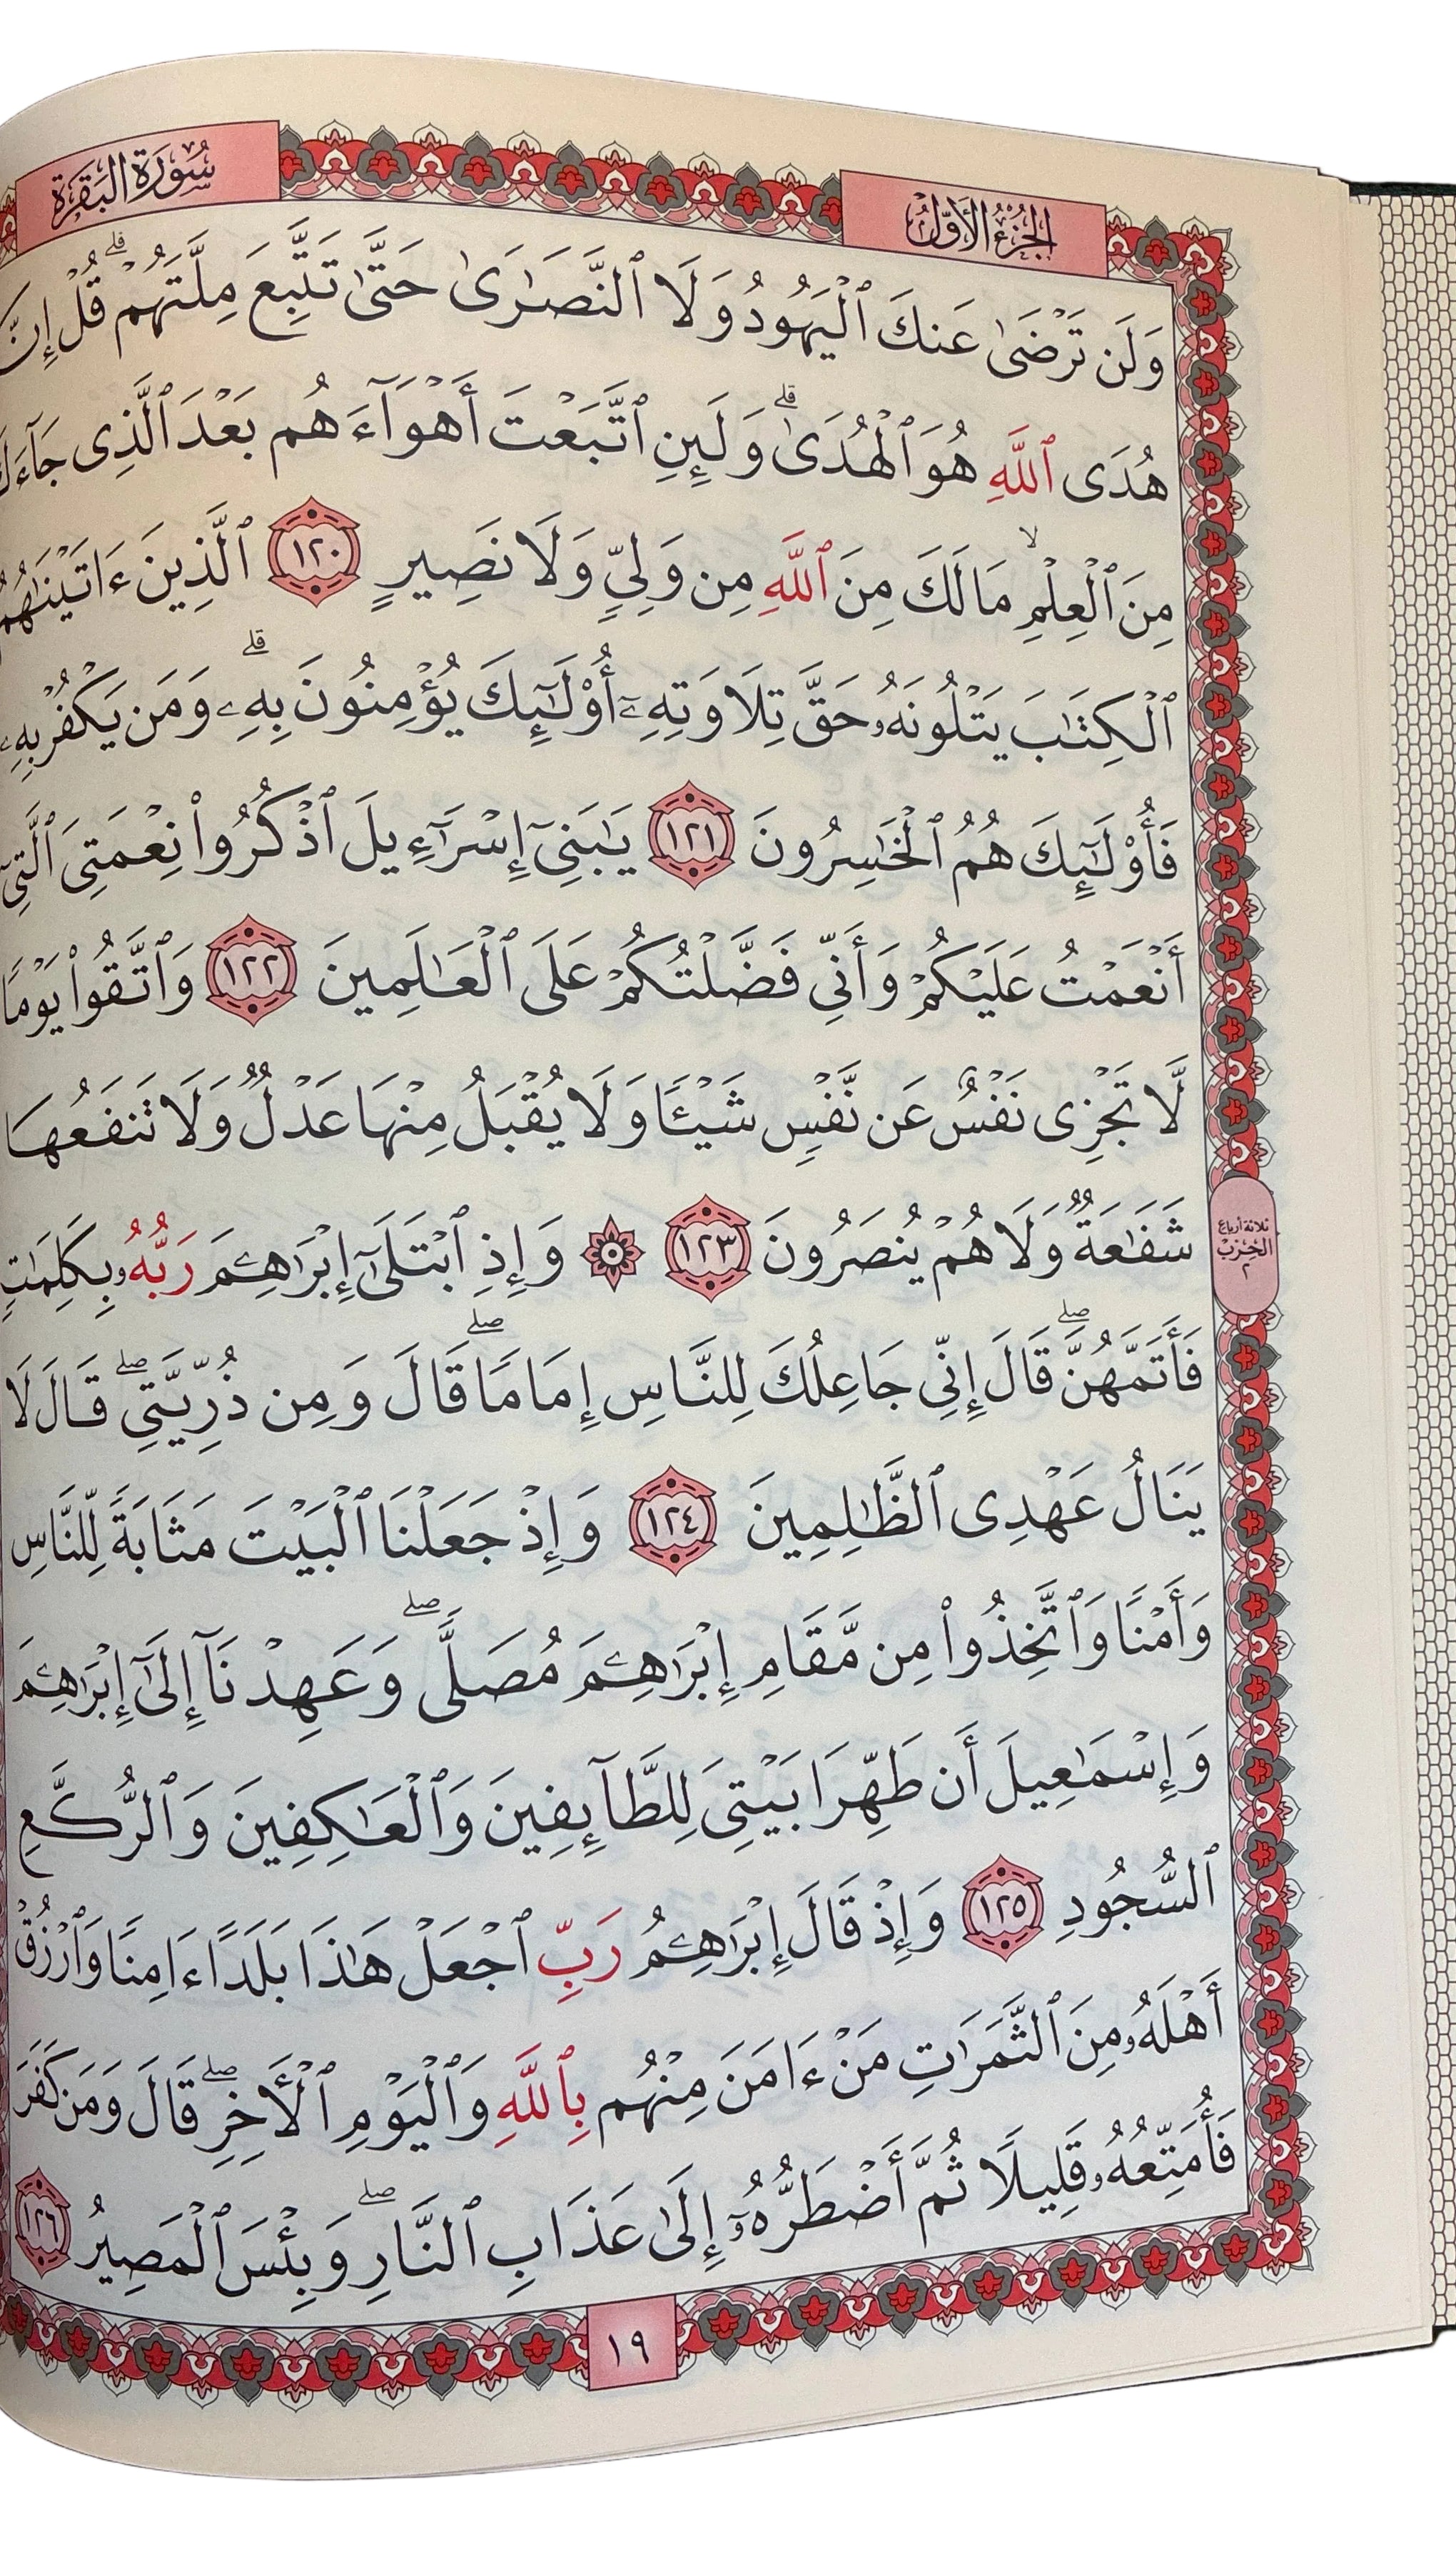 سُورَةُ البَقَرَةِ
الجُزْءُ الأَوَّلُ
وَلَن تَرْضَىٰ عَنكَ ٱلْيَهُودُ وَلَا ٱلنَّصَـٰرَىٰ حَتَّىٰ تَتَّبِعَ مِلَّتَهُمْ ۗ قُلْ إِنَّ
هُدَى ٱللَّهِ هُوَ ٱلْهُدَىٰ ۗ وَلَئِنِ ٱتَّبَعْتَ أَهْوَآءَهُم بَعْدَ ٱلَّذِى جَآءَكَ
مِنَ ٱلْعِلْمِ ۙ مَا لَكَ مِنَ ٱللَّهِ مِن وَلِىٍّ وَلَا نَصِيرٍ ١٢٠ ٱلَّذِينَ ءَاتَيْنَـٰهُمُ
ٱلْكِتَـٰبَ يَتْلُونَهُۥ حَقَّ تِلَاوَتِهِۦٓ أُو۟لَـٰٓئِكَ يُؤْمِنُونَ بِهِۦ ۗ وَمَن يَكْفُرْ بِهِۦ
فَأُو۟لَـٰٓئِكَ هُمُ ٱلْخَـٰسِرُونَ ١٢١ يَـٰبَنِىٓ إِسْرَٰٓءِيلَ ٱذْكُرُوا۟ نِعْمَتِىَ ٱلَّتِىٓ
أَنْعَمْتُ عَلَيْكُمْ وَأَنِّى فَضَّلْتُكُمْ عَلَى ٱلْعَـٰلَمِينَ ١٢٢ وَٱتَّقُوا۟ يَوْمًا
لَّا تَجْزِى نَفْسٌ عَن نَّفْسٍ شَيْـًٔا وَلَا يُقْبَلُ مِنْهَا عَدْلٌ وَلَا تَنفَعُهَا
شَفَـٰعَةٌ وَلَا هُمْ يُنصَرُونَ ١٢٣ ۞ وَإِذِ ٱبْتَلَىٰٓ إِبْرَٰهِـۧمَ رَبُّهُۥ بِكَلِمَـٰتٍ
ثلاثة أرباع
الحزب
٢
فَأَتَمَّهُنَّ ۖ قَالَ إِنِّى جَاعِلُكَ لِلنَّاسِ إِمَامًا ۖ قَالَ وَمِن ذُرِّيَّتِى ۖ قَالَ لَا
يَنَالُ عَهْدِى ٱلظَّـٰلِمِينَ ١٢٤ وَإِذْ جَعَلْنَا ٱلْبَيْتَ مَثَابَةً لِّلنَّاسِ
وَأَمْنًا وَٱتَّخِذُوا۟ مِن مَّقَامِ إِبْرَٰهِـۧمَ مُصَلًّى ۖ وَعَهِدْنَآ إِلَىٰٓ إِبْرَٰهِـۧمَ
وَإِسْمَـٰعِيلَ أَن طَهِّرَا بَيْتِىَ لِلطَّآئِفِينَ وَٱلْعَـٰكِفِينَ وَٱلرُّكَّعِ
ٱلسُّجُودِ ١٢٥ وَإِذْ قَالَ إِبْرَٰهِـۧمُ رَبِّ ٱجْعَلْ هَـٰذَا بَلَدًا ءَامِنًا وَٱرْزُقْ
أَهْلَهُۥ مِنَ ٱلثَّمَرَٰتِ مَنْ ءَامَنَ مِنْهُم بِٱللَّهِ وَٱلْيَوْمِ ٱلْـَٔاخِرِ ۖ قَالَ وَمَن كَفَرَ
فَأُمَتِّعُهُۥ قَلِيلًا ثُمَّ أَضْطَرُّهُۥٓ إِلَىٰ عَذَابِ ٱلنَّارِ ۖ وَبِئْسَ ٱلْمَصِيرُ ١٢٦
١٩